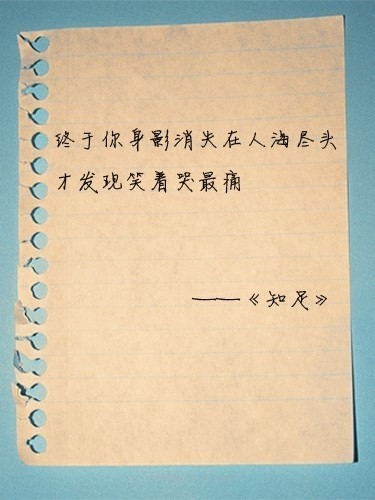 终于你身影消失在人海尽头
才发现笑着哭最痛
——《知足》